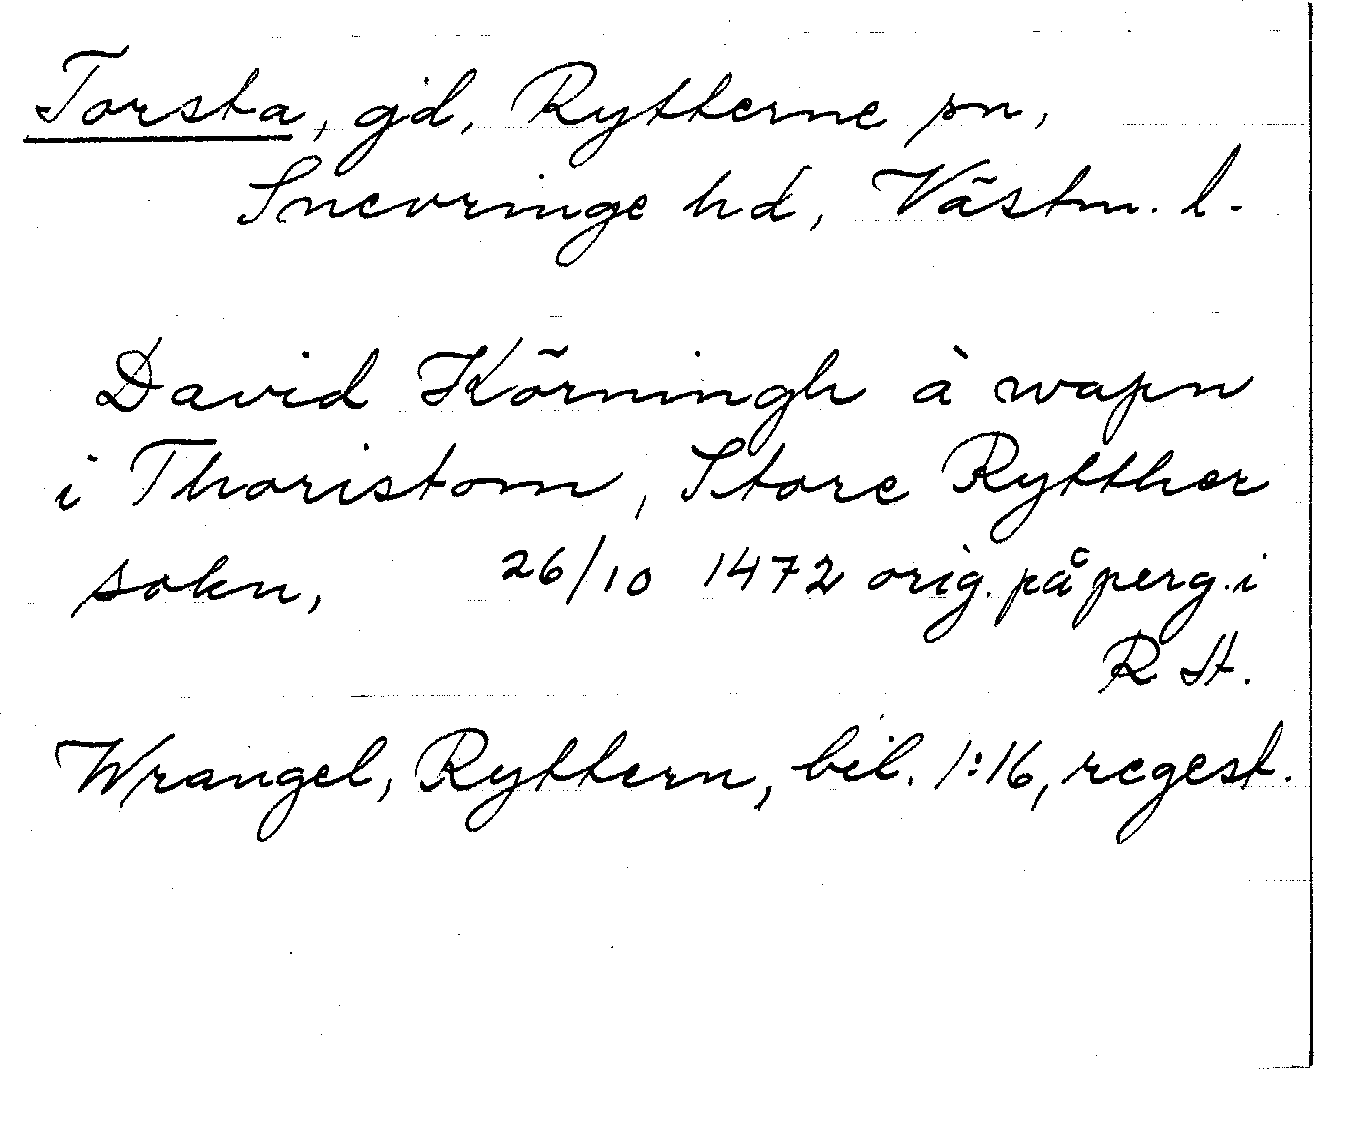 Torsta, gd, Rytterne sn,
Snevringe hd, Västm. l.
David Körningh à wapn
i Thoristom, Store Rytther
sokn, 26/10 1472 orig. på perg. i
R A.
Wrangel, Ryttern, bil. 1:16, regest.